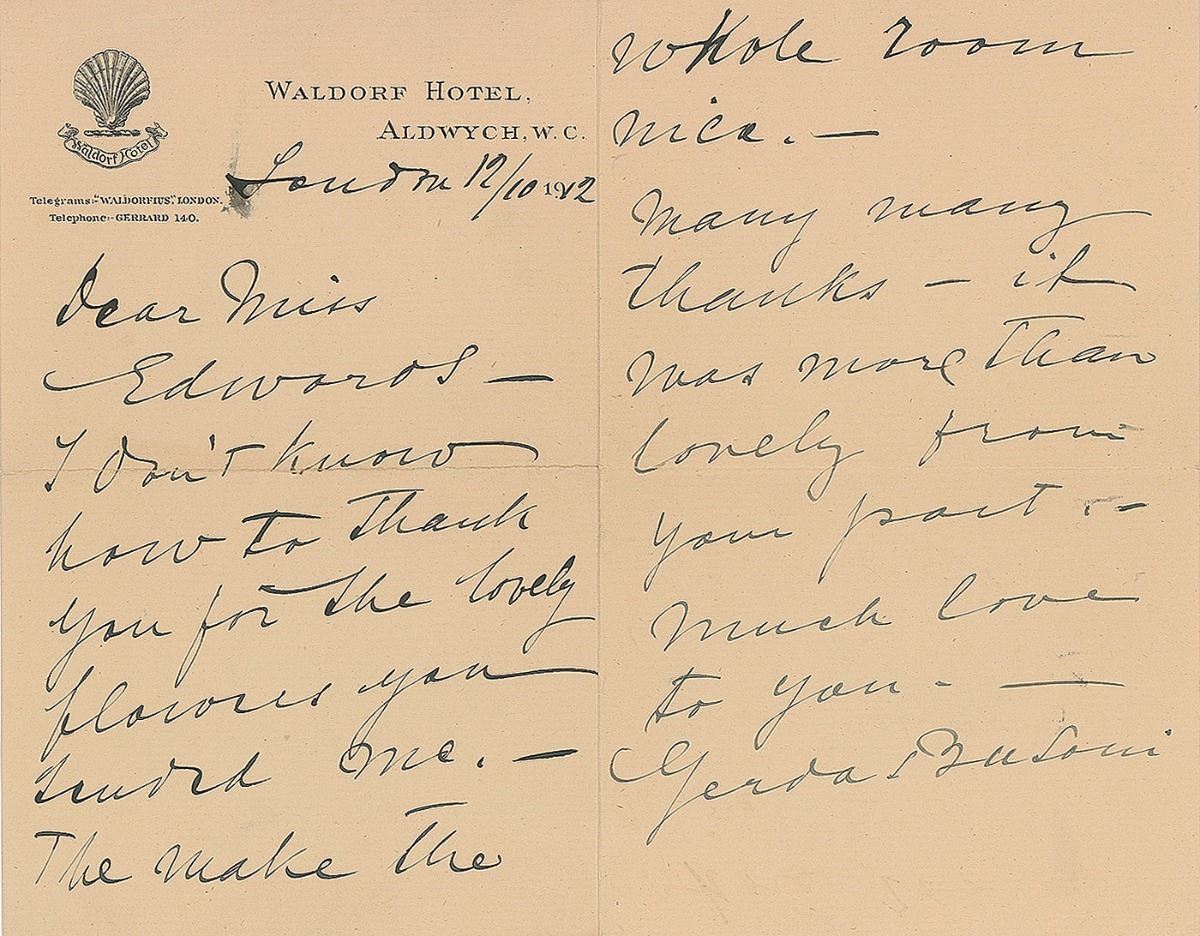 Waldorf Hotel
WALDORF HOTEL,
ALDWYCH, W.C.
Telegrams:-"WALDORFIUS", LONDON.
Telephone:- GERRARD 140.
London 12/10 1912
Dear Miss
Edwards —
I don't know
how to thank
you for the lovely
flowres you
sended me. —
The make the
whole room
nice. —
Many many
thanks – it
was more than
lovely from
your part. –
Much love
to you. —
Gerda Busoni